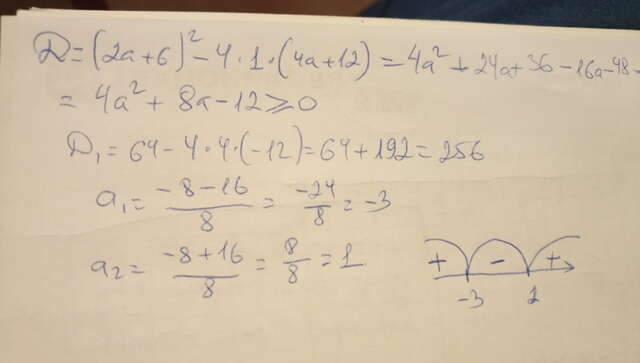 D=(2a+6)²-4·1·(4a+12)=4a²+24a+36-16a-48=
=4a²+8a-12⩾0
D₁=64-4·4·(-12)=64+192=256
a₁=(-8-16)/8=-24/8=-3
a₂=(-8+16)/8=8/8=1
+ - +
-3 1